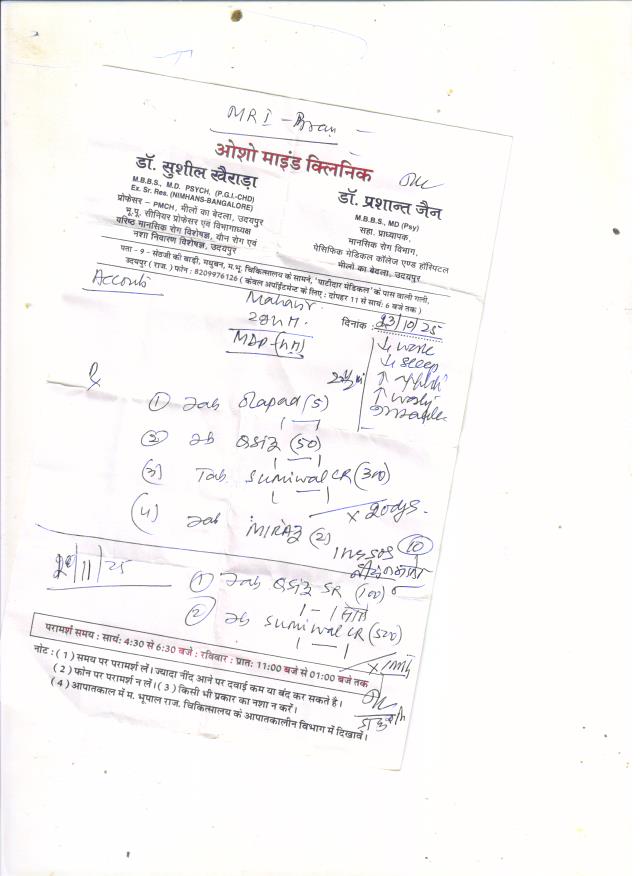 MRI - Brain
ओशो माइंड क्लिनिक
डॉ. सुशील खैराड़ा
M.B.B.S., M.D. PSYCH, (P.G.I.-CHD)
Ex. Sr. Res. (NIMHANS-BANGALORE)
प्रोफेसर – PMCH, भीलों का बेदला, उदयपुर
भू.पू. सीनियर प्रोफेसर एवं विभागाध्यक्ष
वरिष्ठ मानसिक रोग विशेषज्ञ, यौन रोग एवं
नशा निवारण विशेषज्ञ, उदयपुर
डॉ. प्रशान्त जैन
M.B.B.S., MD (Psy)
सहा. प्राध्यापक,
मानसिक रोग विभाग,
पेसिफिक मेडिकल कॉलेज एण्ड हॉस्पिटल
भीलों का बेदला, उदयपुर
पता - 9 - सेठजी की बाड़ी, मधुबन, म.भू. चिकित्सालय के सामने, 'पाटीदार मेडिकल' के पास वाली गली,
उदयपुर ( राज. ) फोन : 8209976126 ( केवल अपॉईंटमेन्ट के लिए : दोपहर 11 से सायं: 6 बजे तक )
दिनांक : 23/10/25
MDP
↓ work
↓ sleep
℞
① Tab Olapad (5)
② Tab QSIZ (50)
(3) Tab. Sumiwal CR (300)
x 20 days.
(4) Tab MIRAZ (2)
10
/11/25
① Tab QSIZ SR (100)
② Tab Sumiwal CR (500)
परामर्श समय : सायं: 4:30 से 6:30 बजे : रविवार : प्रातः 11:00 बजे से 01:00 बजे तक
नोट : ( 1 ) समय पर परामर्श लें। ज्यादा नींद आने पर दवाई कम या बंद कर सकते है।
( 2 ) फोन पर परामर्श न लें। ( 3 ) किसी भी प्रकार का नशा न करें।
( 4 ) आपातकाल में म. भूपाल राज. चिकित्सालय के आपातकालीन विभाग में दिखावें।